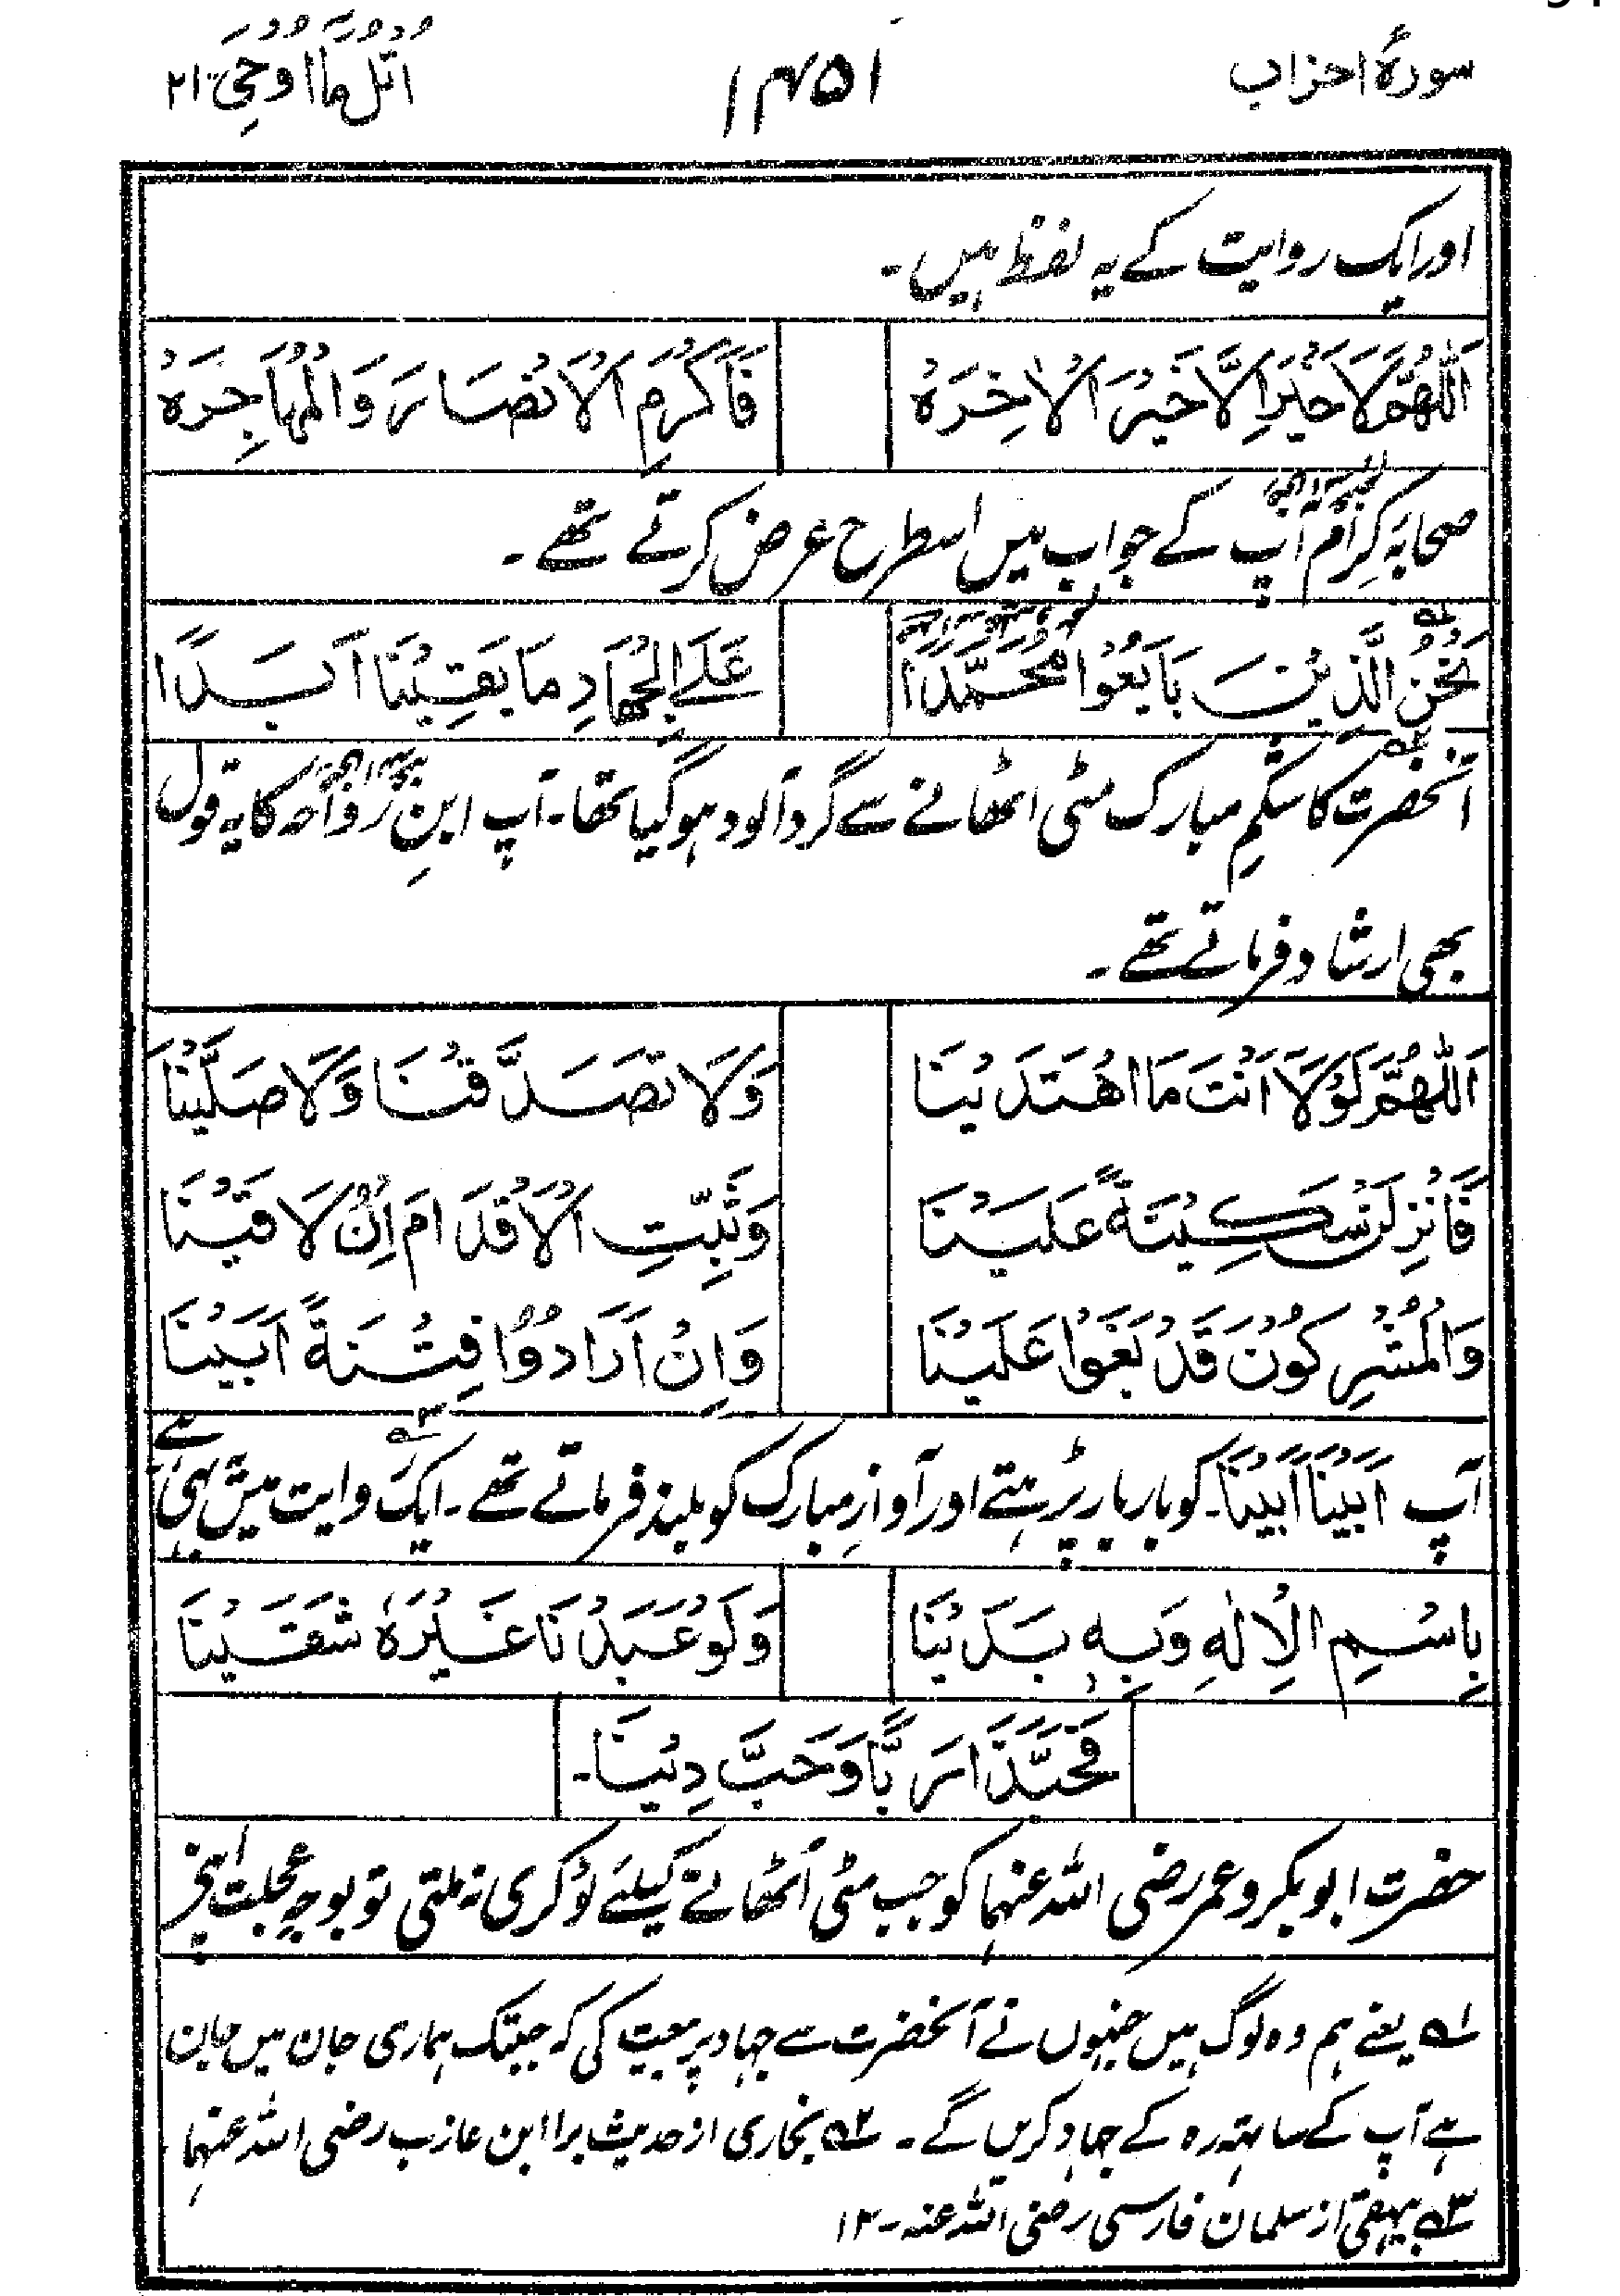 سورۂ احزاب
۱۴۵۱
اُتْلُ مَا اُوْحِیَ ۲۱
اور ایک روایت کے یہ لفظ ہیں۔
اَللّٰهُمَّ لَا خَيْرَ اِلَّا خَيْرَ الْاٰخِرَهْ فَاَكْرِمِ الْاَنْصَارَ وَالْمُهَاجِرَهْ
صحابۂ کِرام آپ کے جواب میں اسطرح عرض کرتے تھے۔
نَحْنُ الَّذِيْنَ بَايَعُوْا مُحَمَّدًا عَلَى الْجِهَادِ مَا بَقِيْنَا اَبَدًا
آنحضرت کا شکمِ مبارک مٹی اٹھانے سے گرد آلود ہوگیا تھا۔ آپ ابنِ رواحہ کا یہ قول
بھی ارشاد فرماتے تھے۔
اَللّٰهُمَّ لَوْلَا اَنْتَ مَا اهْتَدَيْنَا وَلَا تَصَدَّقْنَا وَلَا صَلَّيْنَا
فَاَنْزِلَنْ سَكِيْنَةً عَلَيْنَا وَثَبِّتِ الْاَقْدَامَ اِنْ لَاقَيْنَا
وَالْمُشْرِكُوْنَ قَدْ بَغَوْا عَلَيْنَا وَاِنْ اَرَادُوْا فِتْنَةً اَبَيْنَا
آپ اَبَيْنَا اَبَيْنَا۔ کو بار بار پڑہتے اور آوازِ مبارک کو بلند فرماتے تھے۔ ایک روایت میں
بِاسْمِ الْاِلٰهِ وَبِهٖ بَدَيْنَا وَلَوْ عَبَدْنَا غَيْرَهٗ شَقَيْنَا
فَحَبَّذَا رَبًّا وَحَبَّ دِيْنَا۔
حضرت ابوبکر و عمر رضی اللہ عنہما کو جب مٹی اُٹھانے کیلئے ٹوکری نہ ملتی تو بوجہِ عجلت اپنے
۱؎ یعنے ہم وہ لوگ ہیں جنہوں نے آنحضرت سے جہاد پر بیعت کی کہ جبتک ہماری جان میں جان
ہے آپ کے ساہتہ رہ کے جہاد کریں گے۔ ۲؎ بخاری از حدیث برا ابن عازب رضی اللہ عنہما
۳؎ بیہقی از سلمان فارسی رضی اللہ عنہ۔۱۲